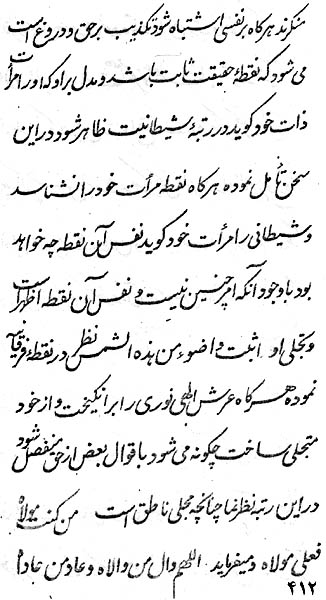 منکرند هرکاه بر نفسی اشتباه شود تکذیب بر حق و دروغ است
می شود که نقطهٔ حقیقت ثابت باشد و مدل بر او که او را مرأت
ذات خود کوید در رتبهٔ شیطانیت ظاهر شود در این
سخن تأمل نموده هرکاه نقطه مرأت خود را نشناسد
و شیطانی را مرأت خود کوید نفس آن نقطه چه خواهد
بود با وجود آنکه امر چنین نیست و نفس آن نقطه اظهر است
و تجلی او اثبت و اضوء من هذه الشمس نظر در نقطهٔ فرقانیه
نموده هرکاه عرش الهی نوری را برانکیخت و از خود
متجلی ساخت چکونه می شود باقوال بعض از حق منفصل شود
در این رتبه نظر نما چنانچه مجلی ناطق است من کنت مولاه
فعلی مولاه و میفرماید اللهم وال من والاه و عاد من عاداه
۴۱۲